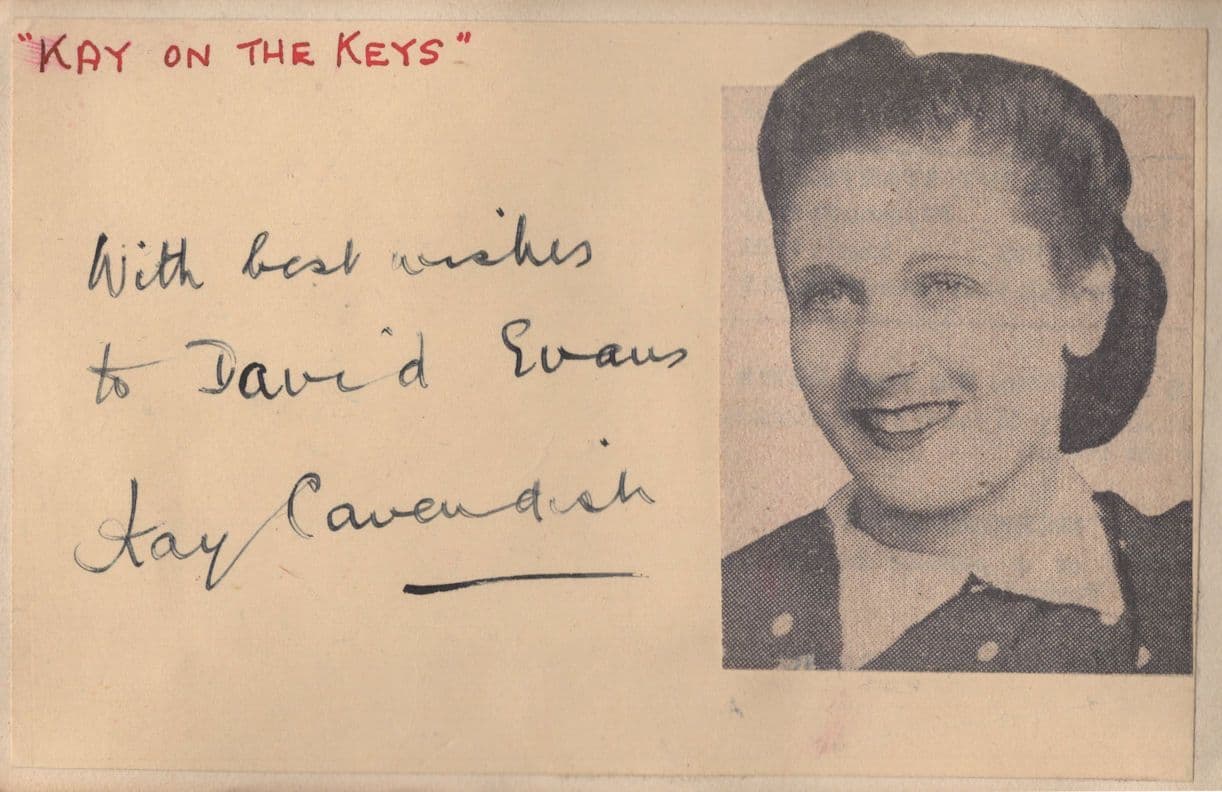 "KAY ON THE KEYS"
With best wishes
to David Evans
Kay Cavendish